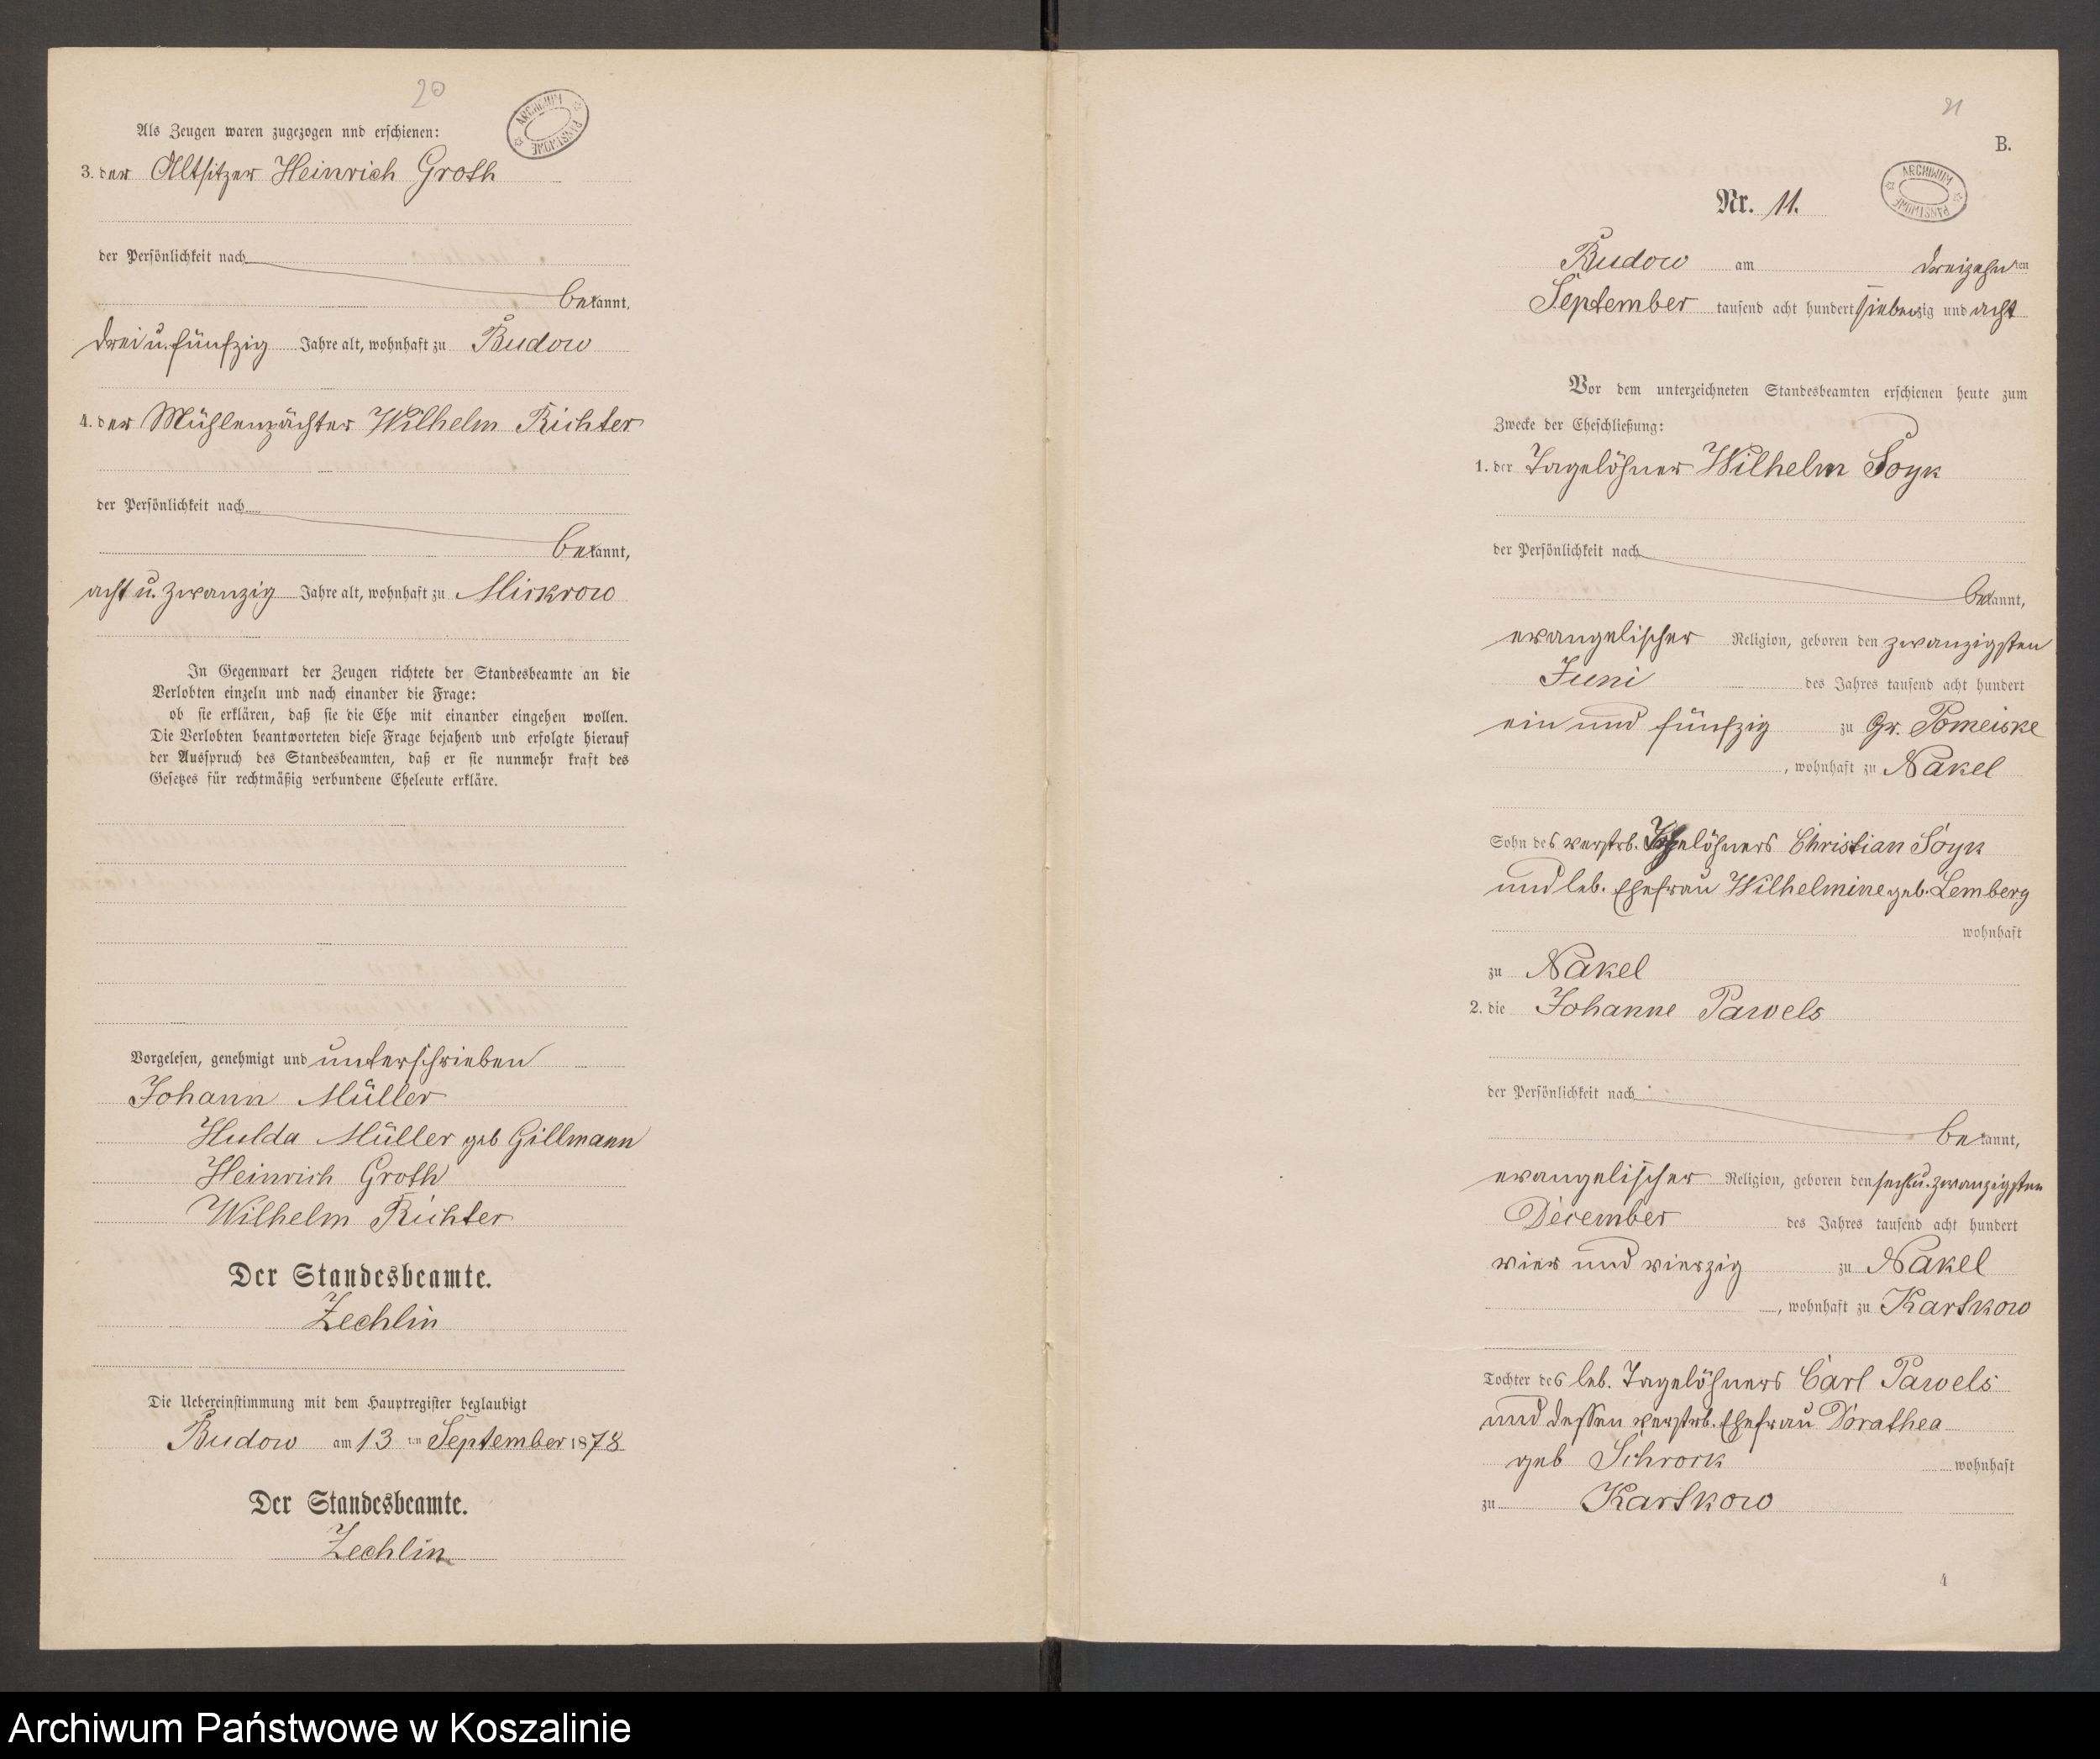 20
ARCHIWUM PAŃSTWOWE
Als Zeugen waren zugezogen nnd erschienen:
3. der Altsitzer Heinrich Groth
der Persönlichkeit nach
bekannt,
drei u. fünfzig Jahre alt, wohnhaft zu Budow
4. der Mühlenpächter Wilhelm Richter
der Persönlichkeit nach
bekannt,
acht u. zwanzig Jahre alt, wohnhaft zu Mickrow
In Gegenwart der Zeugen richtete der Standesbeamte an die
Verlobten einzeln und nach einander die Frage:
ob sie erklären, daß sie die Ehe mit einander eingehen wollen.
Die Verlobten beantworteten diese Frage bejahend und erfolgte hierauf
der Ausspruch des Standesbeamten, daß er sie nunmehr kraft des
Gesetzes für rechtmäßig verbundene Eheleute erkläre.
Vorgelesen, genehmigt und unterschrieben
Johann Müller
Hulda Müller geb Gillmann
Heinrich Groth
Wilhelm Richter
Der Standesbeamte.
Zechlin
Die Uebereinstimmung mit dem Hauptregister beglaubigt
Budow am 13 ten September 1878
Der Standesbeamte.
Zechlin
21
B.
ARCHIWUM PAŃSTWOWE
Nr. 11.
Budow am dreizehn ten
September tausend acht hundert siebenzig und acht
Vor dem unterzeichneten Standesbeamten erschienen heute zum
Zwecke der Eheschließung:
1. der Tagelöhner Wilhelm Soyk
der Persönlichkeit nach
bekannt,
evangelischer Religion, geboren den zwanzigsten
Juni des Jahres tausend acht hundert
ein und fünfzig zu Gr. Pomeiske
, wohnhaft zu Nakel
Sohn des verstrb. Tagelöhners Christian Soyk
und leb. Ehefrau Wilhelmine geb. Lemberg
wohnhaft
zu Nakel
2. die Johanne Pawels
der Persönlichkeit nach
bekannt,
evangelischer Religion, geboren den sechs u. zwanzigsten
December des Jahres tausend acht hundert
vier und vierzig zu Nakel
, wohnhaft zu Kartkow
Tochter des leb. Tagelöhners Carl Pawels
und dessen verstrb. Ehefrau Dorathea
geb Schrock wohnhaft
zu Kartkow
4
Archiwum Państwowe w Koszalinie